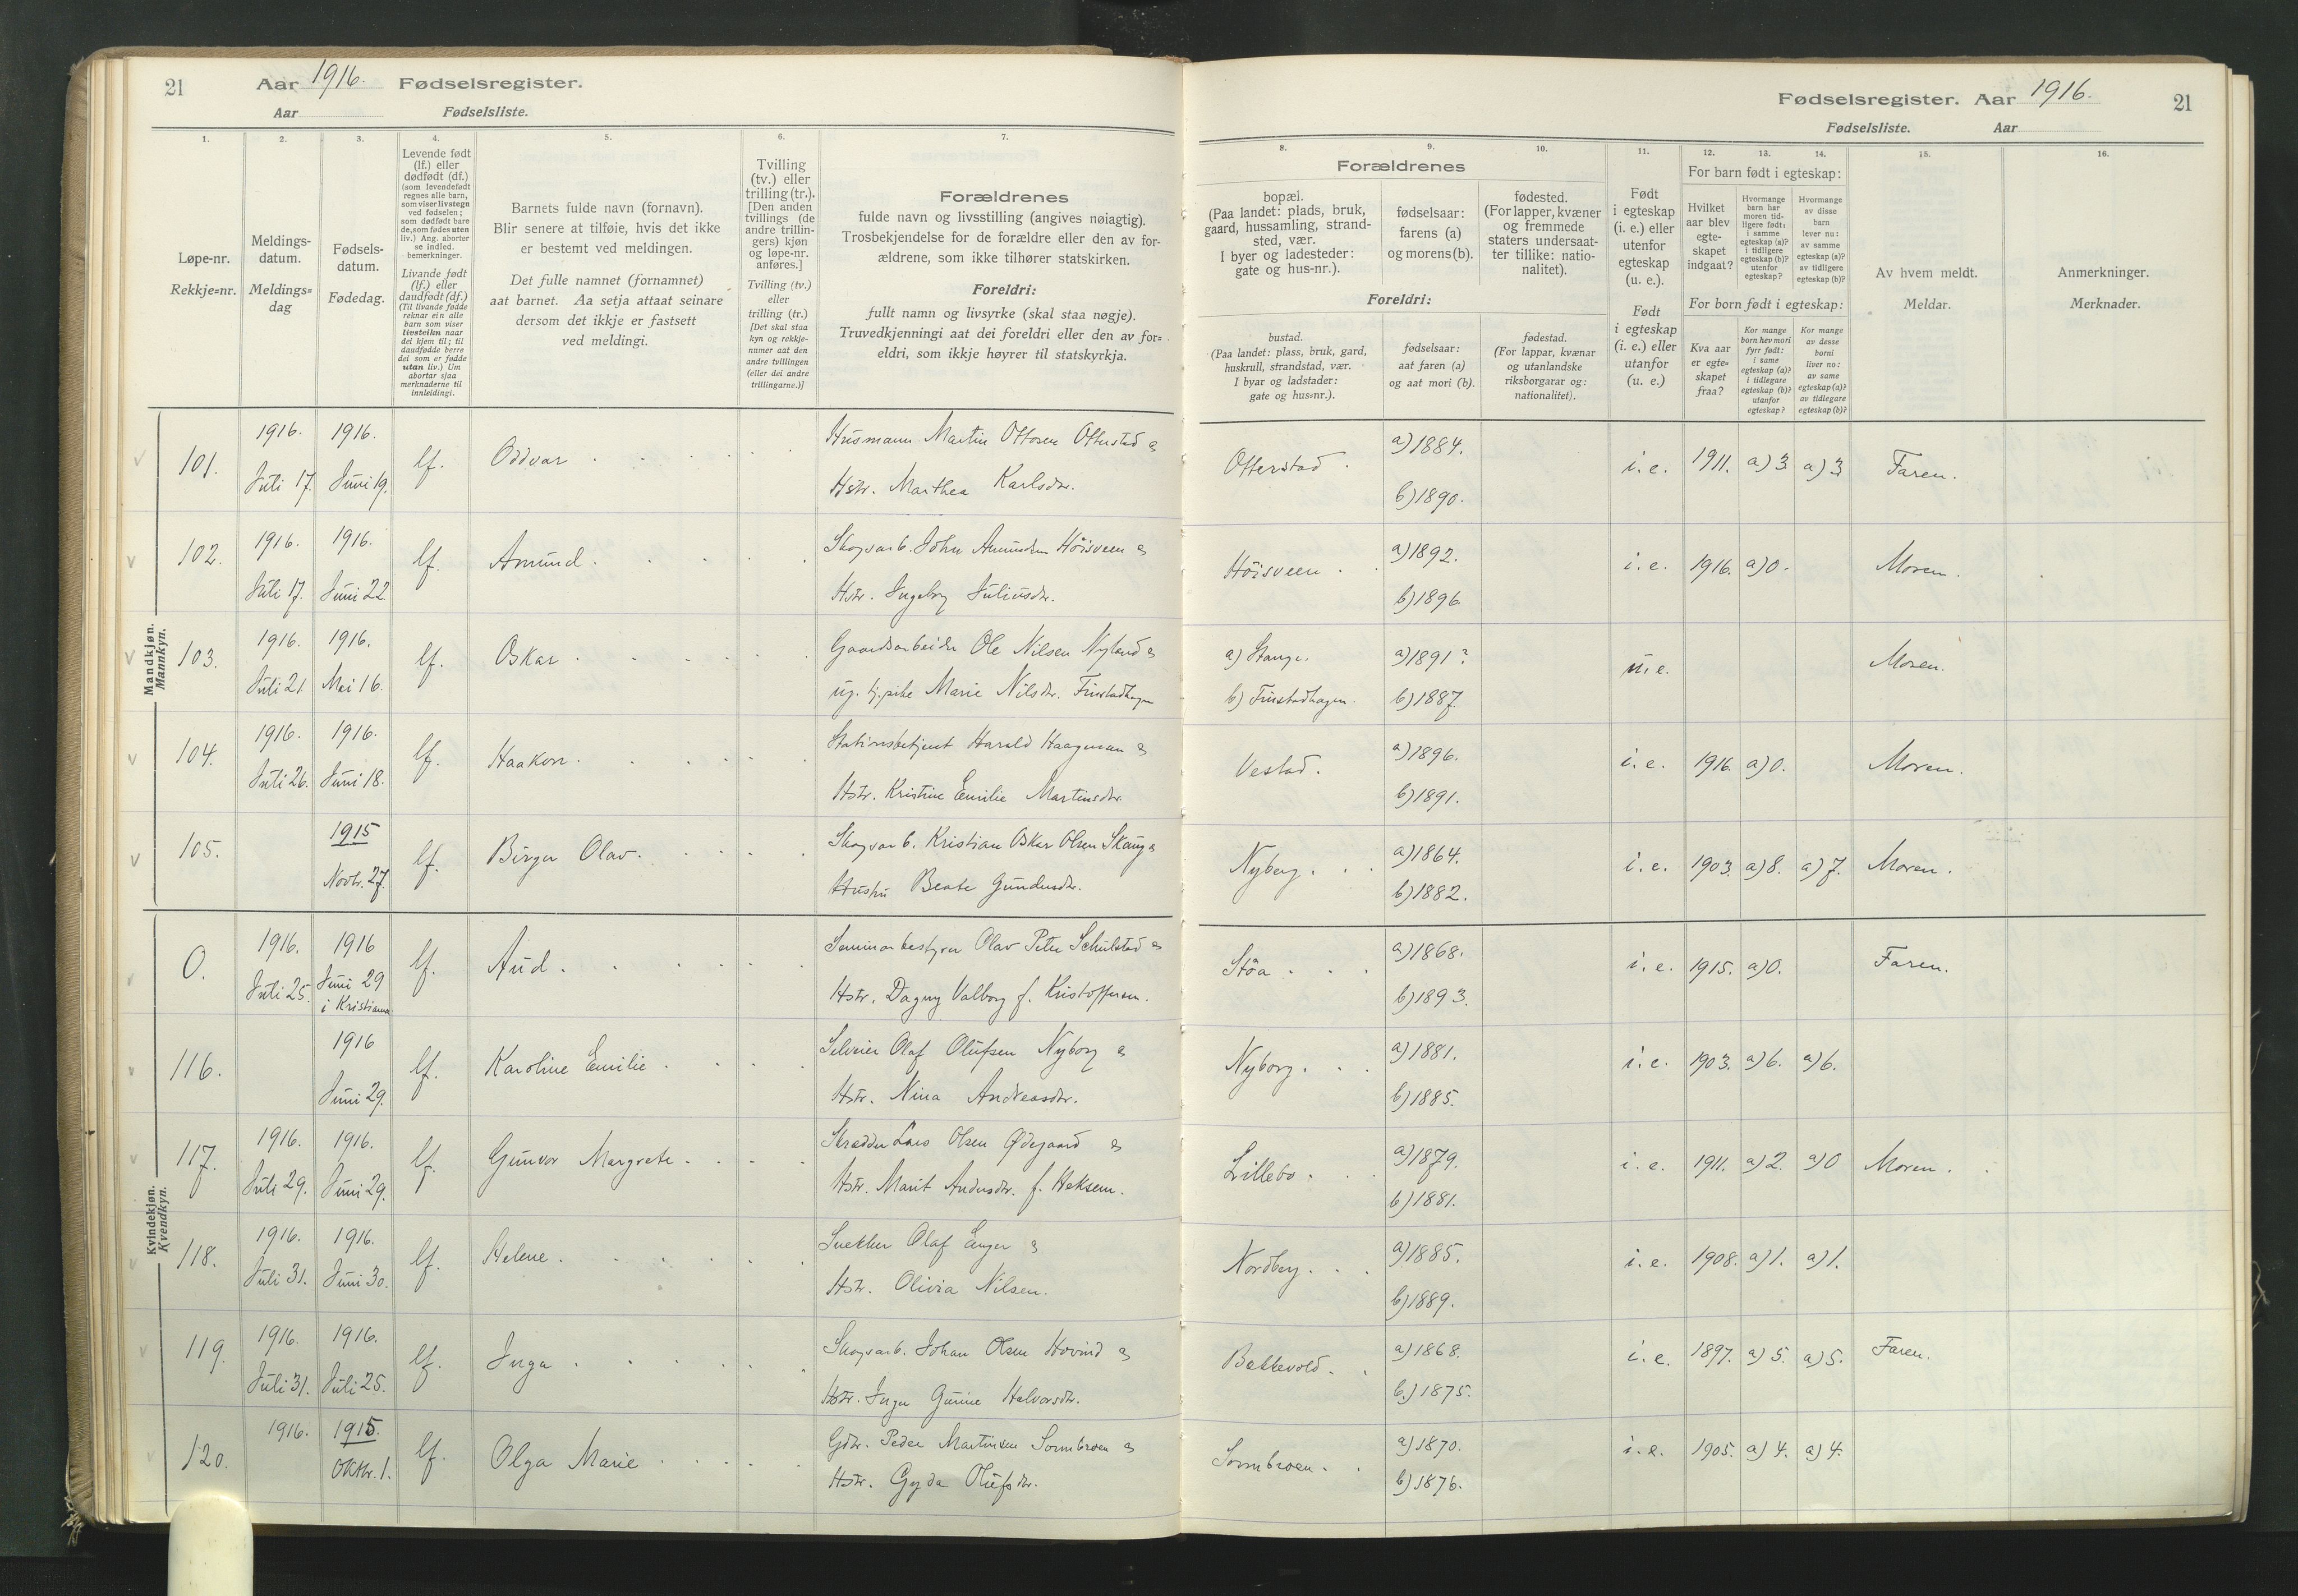 21
Aar 1916. Fødselsregister.
Aar Fødselsliste.
1.
Løpe-nr.
Rekkje=nr.
2.
Meldings-
datum.
Meldings=
dag
3.
Fødsels-
datum.
Fødedag.
4.
Levende født
(lf.) eller
dødfødt (df.)
(som levendefødt
regnes alle barn,
som viser livstegn
ved fødselen;
som dødfødt bare
de, som fødes uten
liv.) Ang. aborter
se indled.
bemerkninger.
Livande født
(lf.) eller
daudfødt (df.)
(Til livande fødde
reknar ein alle
barn som viser
livsteikn naar
dei kjem til; til
daudfødde berre
dei som er fødde
utan liv.) Um
abortar sjaa
merknaderne til
innleidingi.
5.
Barnets fulde navn (fornavn).
Blir senere at tilføie, hvis det ikke
er bestemt ved meldingen.
Det fulle namnet (fornamnet)
aat barnet. Aa setja attaat seinare
dersom det ikkje er fastsett
ved meldingi.
6.
Tvilling
(tv.) eller
trilling (tr.).
[Den anden
tvillings (de
andre trillin-
gers) kjøn
og løpe-nr.
anføres.]
Tvilling (tv.)
eller
trilling (tr.)
[Det skal staa
kyn og rekkje-
numer aat den
andre tvillingen
(eller dei andre
trillingarne.)]
7.
Forældrenes
fulde navn og livsstilling (angives nøiagtig).
Trosbekjendelse for de forældre eller den av for-
ældrene, som ikke tilhører statskirken.
Foreldri:
fullt namn og livsyrke (skal staa nøgje).
Truvedkjenningi aat dei foreldri eller den av for=
eldri, som ikkje høyrer til statskyrkja.
Mandkjøn.
Mannkyn.
101. 1916. Juli 17. 1916. Juni 19. lf. Oddvar
Husmann Martin Ottosen Otterstad &
Hstr. Marthea Karlsdtr.
102. 1916. Juli 17. 1916. Juni 22. lf. Amund
Skogsarb. John Amundsen Höisveen &
Hstr. Ingeborg Juliusdtr.
103. 1916. Juli 21. 1916. Mai 16. lf. Oskar
Gaardsarbeider Ole Nilsen Nyland &
ug. tj.pike Marie Nilsdtr. Finstadhagen
104. 1916. Juli 26. 1916. Juni 18. lf. Haakon
Stationsbetjent Harald Haagensen &
Hstr. Kristine Emilie Martinsdtr.
105. 1915 Novbr. 27. lf. Birger Olav
Skogsarb. Kristian Oskar Olsen Skaug &
Hustru Beate Gundersdtr.
Kvindekjøn.
Kvendkyn.
0. 1916. Juli 25. 1916 Juni 29 i Kristiania lf. Aud
Seminarbestyrer Olav Peter Schulstad &
Hstr. Dagny Valborg f. Kristoffersen.
116. 1916 Juni 29. lf. Karoline Emilie
Selveier Olaf Olufsen Nyborg &
Hstr. Nina Andreasdtr.
117. 1916. Juli 29. 1916. Juni 29. lf. Gunvor Margrete
Skrædder Lars Olsen Ødegaard &
Hstr. Marit Andersdtr. f. Heksem.
118. 1916. Juli 31. 1916. Juni 30. lf. Helene
Snekker Olaf Enger &
Hstr. Olivia Nilsen.
119. 1916. Juli 31. 1916. Juli 25. lf. Inga
Skogsarb. Johan Olsen Hovind &
Hstr. Inger Gurine Halvorsdtr.
120. 1916. 1915. Oktbr. 1. lf. Olga Marie
Gdbr. Peder Martinsen Sormbroen &
Hstr. Gyda Olufsdtr.
Fødselsregister. Aar 1916. 21
Fødselsliste. Aar
8.
9.
10.
Forældrenes
bopæl.
(Paa landet: plads, bruk,
gaard, hussamling, strand-
sted, vær.
I byer og ladesteder:
gate og hus-nr.).
fødselsaar:
farens (a)
og morens (b).
fødested.
(For lapper, kvæner
og fremmede
staters undersaat-
ter tillike: natio-
nalitet).
Foreldri:
bustad.
(Paa landet: plass, bruk, gard,
huskrull, strandstad, vær.
I byar og ladstader:
gate og hus=nr.).
fødselsaar:
aat faren (a)
og aat mori (b).
fødestad.
(For lappar, kvænar
og utanlandske
riksborgarar og:
nationalitet).
11.
Født
i egteskap
(i. e.) eller
utenfor
egteskap
(u. e.).
Født
i egteskap
(i. e.) eller
utanfor
(u. e.)
12.
13.
14.
For barn født i egteskap:
Hvilket
aar blev
egte-
skapet
indgaat?
Hvormange
barn har
moren tid-
ligere født:
i samme
egteskap (a)?
i tidligere
egteskap (b)?
utenfor
egteskap?
Hvormange
av disse
barn
lever nu:
av samme
egteskap (a)?
av tidligere
egteskap (b)?
For born født i egteskap:
Kva aar
er egte-
skapet
fraa?
Kor mange
born hev mori
fyrr født:
i same
egteskap (a)?
i tidlegare
egteskap (b)?
utanfor
egteskap?
Kor mange
av desse
borni
liver no:
av same
egteskap (a)?
av tidlegare
egteskap (b)?
15.
Av hvem meldt.
Meldar.
16.
Anmerkninger.
Merknader.
Otterstad. a) 1884. b) 1890. i. e. 1911. a) 3 a) 3 Faren.
Höisveen a) 1892. b) 1896. i. e. 1916. a) 0. Moren.
a) Stange. b) Finstadhagen. a) 1891? b) 1887. u. e. Moren.
Vestad. a) 1896. b) 1891. i. e. 1916. a) 0. Moren.
Nyberg. a) 1864. b) 1882. i. e. 1903. a) 8. a) 7. Moren.
Stöa a) 1868. b) 1893. i. e. 1915. a) 0. Faren.
Nyborg. a) 1881. b) 1885. i. e. 1903. a) 6. a) 6.
Lillebo. a) 1879. b) 1881. i. e. 1911. a) 2. a) 0 Moren.
Nordberg. a) 1885. b) 1889. i. e. 1908. a) 1. a) 1.
Bakkevold. a) 1868. b.) 1875. i. e. 1897. a) 5. a) 5. Faren.
Sormbroen. a) 1870. b) 1876. i. e. 1905. a) 4. a) 4.